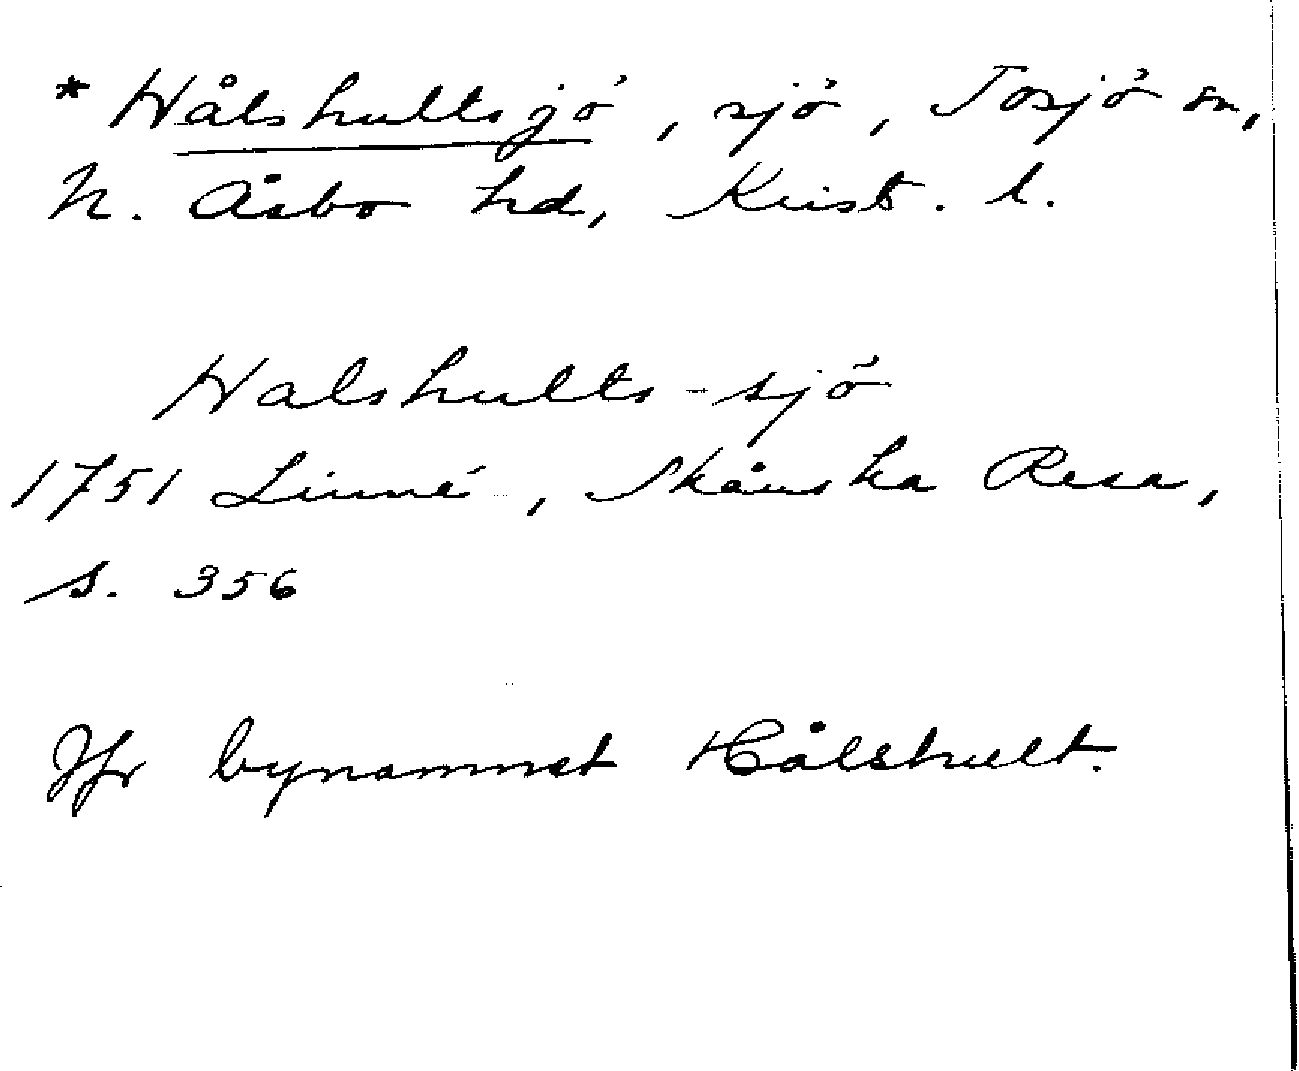 * Hålshultsjö, sjö, Tosjö sn,
N. Åsbo hd, Krist. l.
Halshults-sjö
1751 Linné, Skånska Resa,
s. 356
Jfr bynamnet Hålshult.